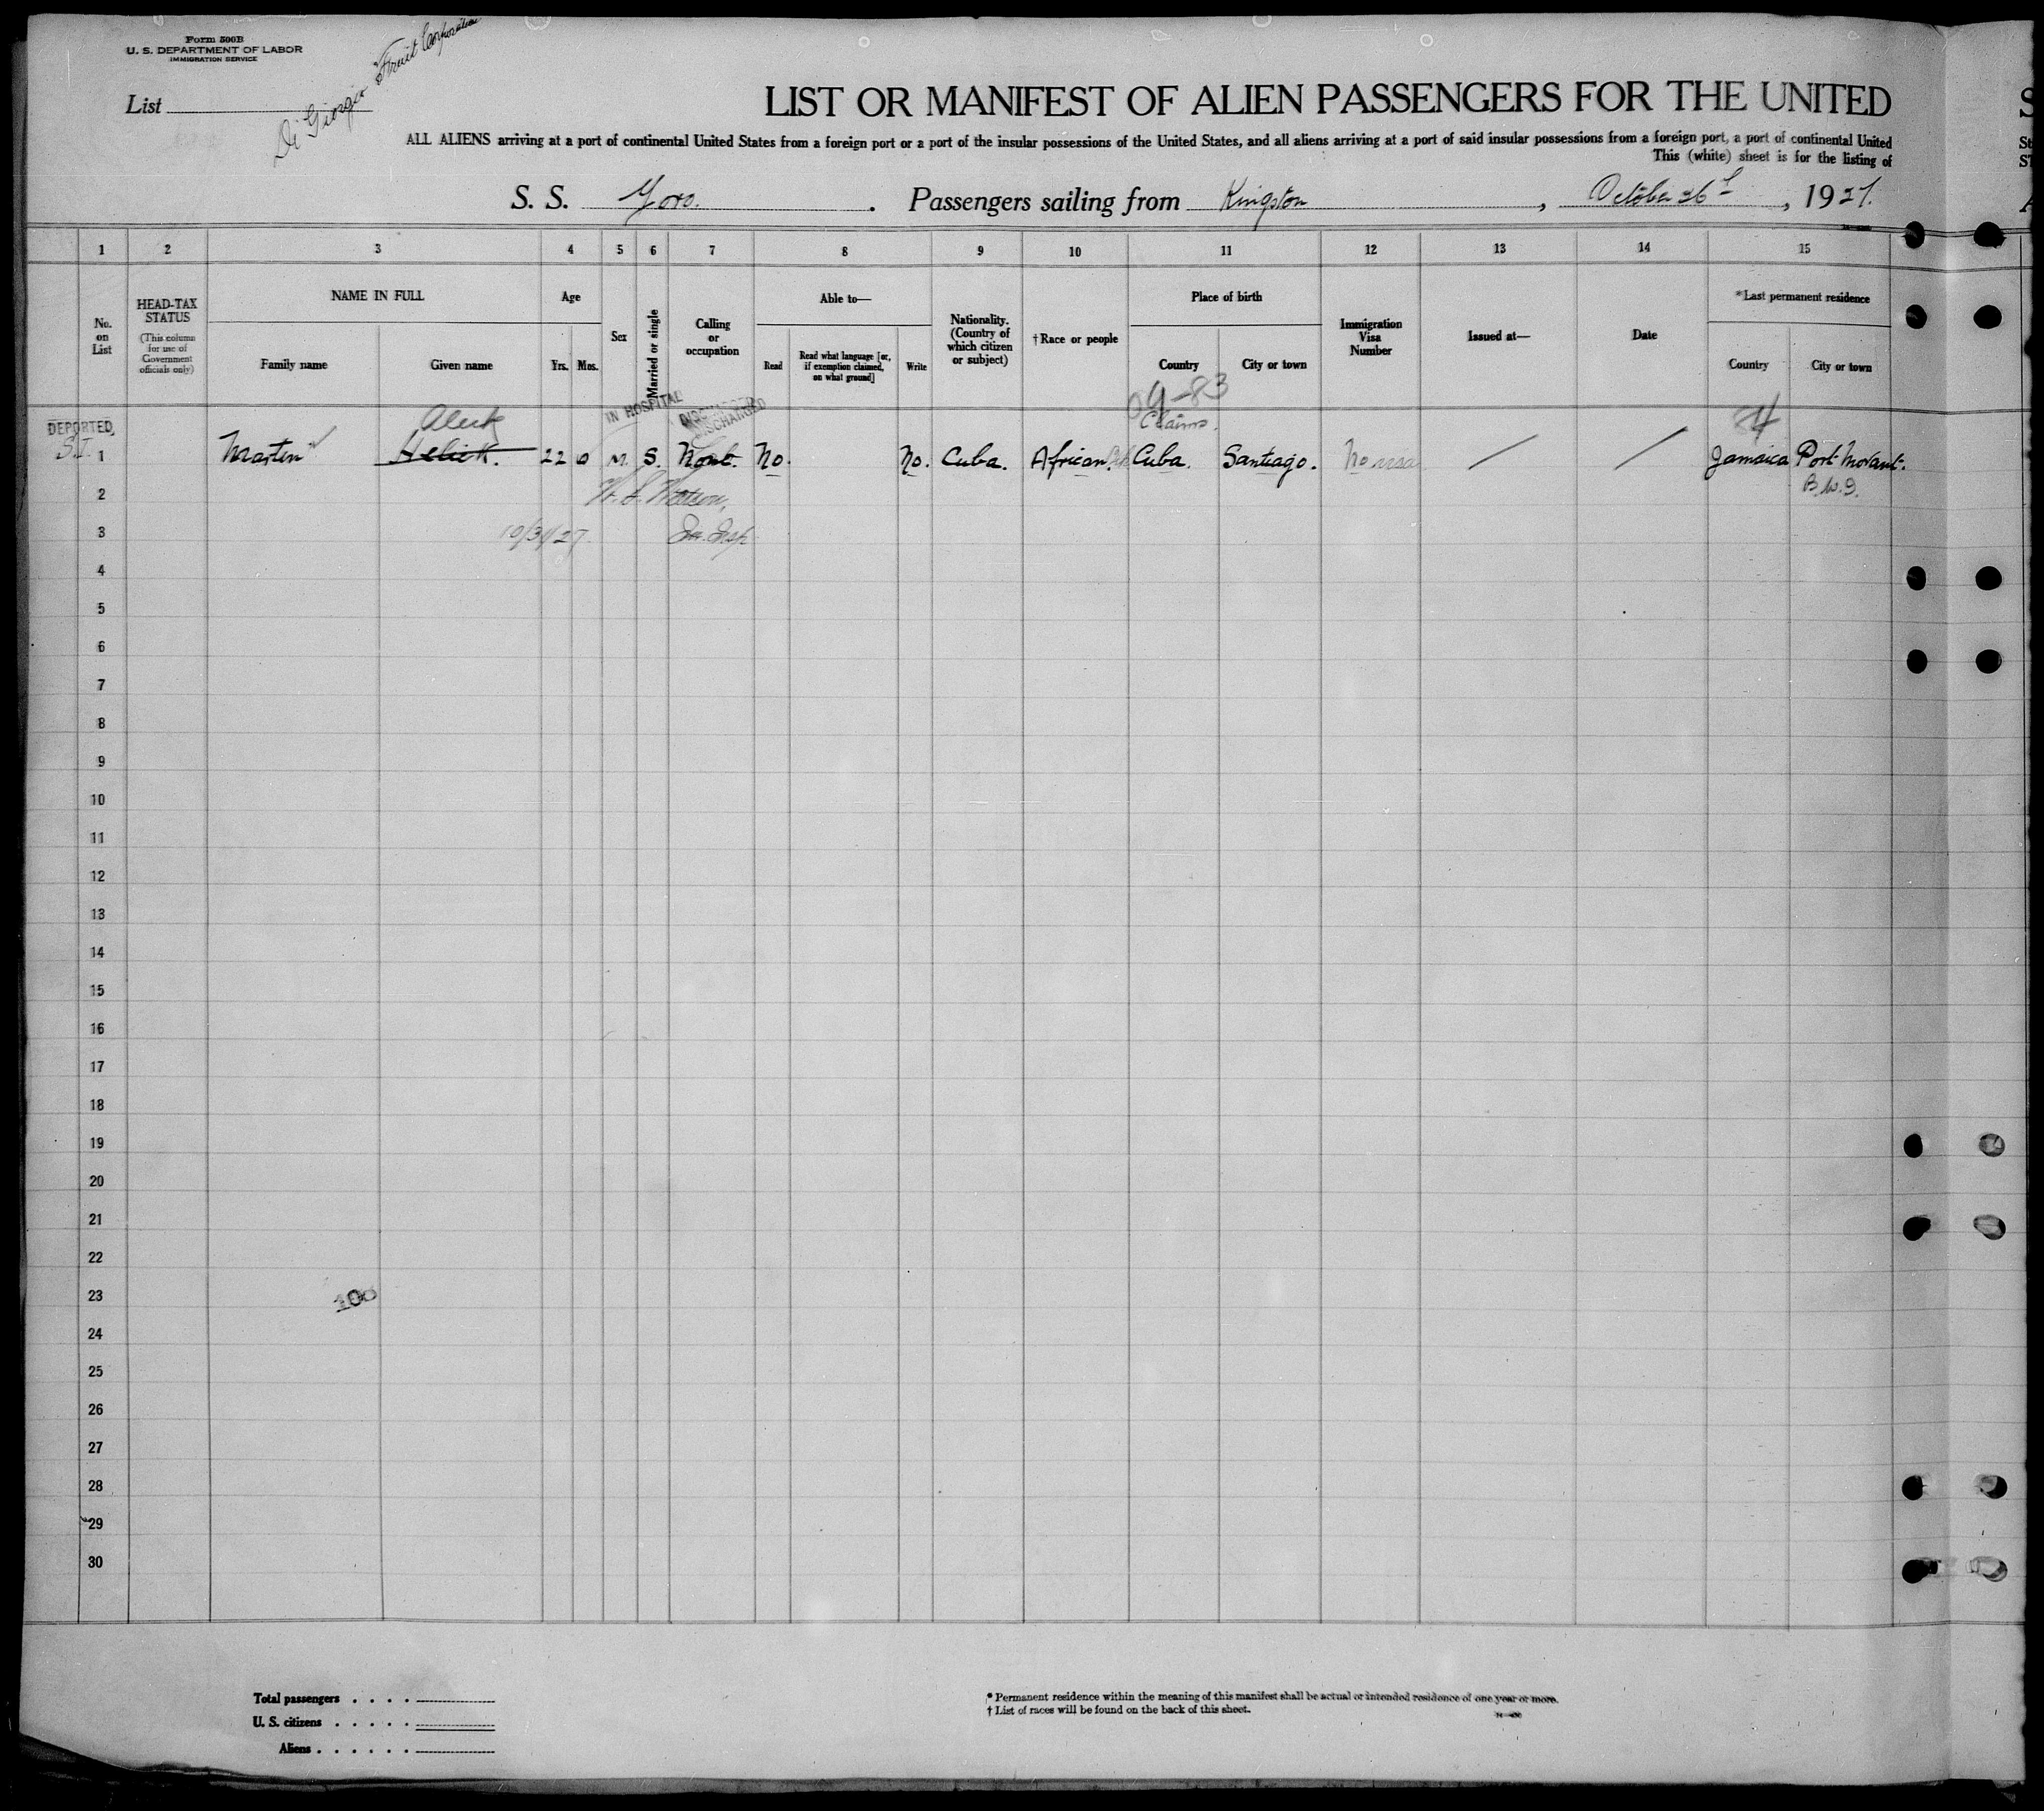 Form 500B
U. S. DEPARTMENT OF LABOR
IMMIGRATION SERVICE
Di Giorgio Fruit Corporation
List
LIST OR MANIFEST OF ALIEN PASSENGERS FOR THE UNITED
S
ALL ALIENS arriving at a port of continental United States from a foreign port or a port of the insular possessions of the United States, and all aliens arriving at a port of said insular possessions from a foreign port, a port of continental United
This (white) sheet is for the listing of
S. S. Yoro. . Passengers sailing from Kingston , October 26th , 1927.
1 2 3 4 5 6 7 8 9 10 11 12 13 14 15
No. on List
HEAD-TAX STATUS
(This column for use of Government officials only)
NAME IN FULL
Family name
Given name
Age
Yrs.
Mos.
Sex
Married or single
Calling or occupation
Able to—
Read
Read what language [or, if exemption claimed, on what ground]
Write
Nationality. (Country of which citizen or subject)
†Race or people
Place of birth
Country
City or town
Immigration Visa Number
Issued at—
Date
*Last permanent residence
Country
City or town
09-83
IN HOSPITAL
DISCHARGED
Claims.
DEPORTED
S.I.
1 Martin 22 0 M. S. None. No. No. Cuba. African. Cuba. Santiago. No visa Jamaica Port Morant.
B.W.I.
2
W. L. Watson,
3 10/31/27 In. Insp
4
5
6
7
8
9
10
11
12
13
14
15
16
17
18
19
20
21
22
23
100
24
25
26
27
28
29
30
Total passengers . . . .
U. S. citizens . . . . .
Aliens . . . . . .
* Permanent residence within the meaning of this manifest shall be actual or intended residence of one year or more.
† List of races will be found on the back of this sheet.